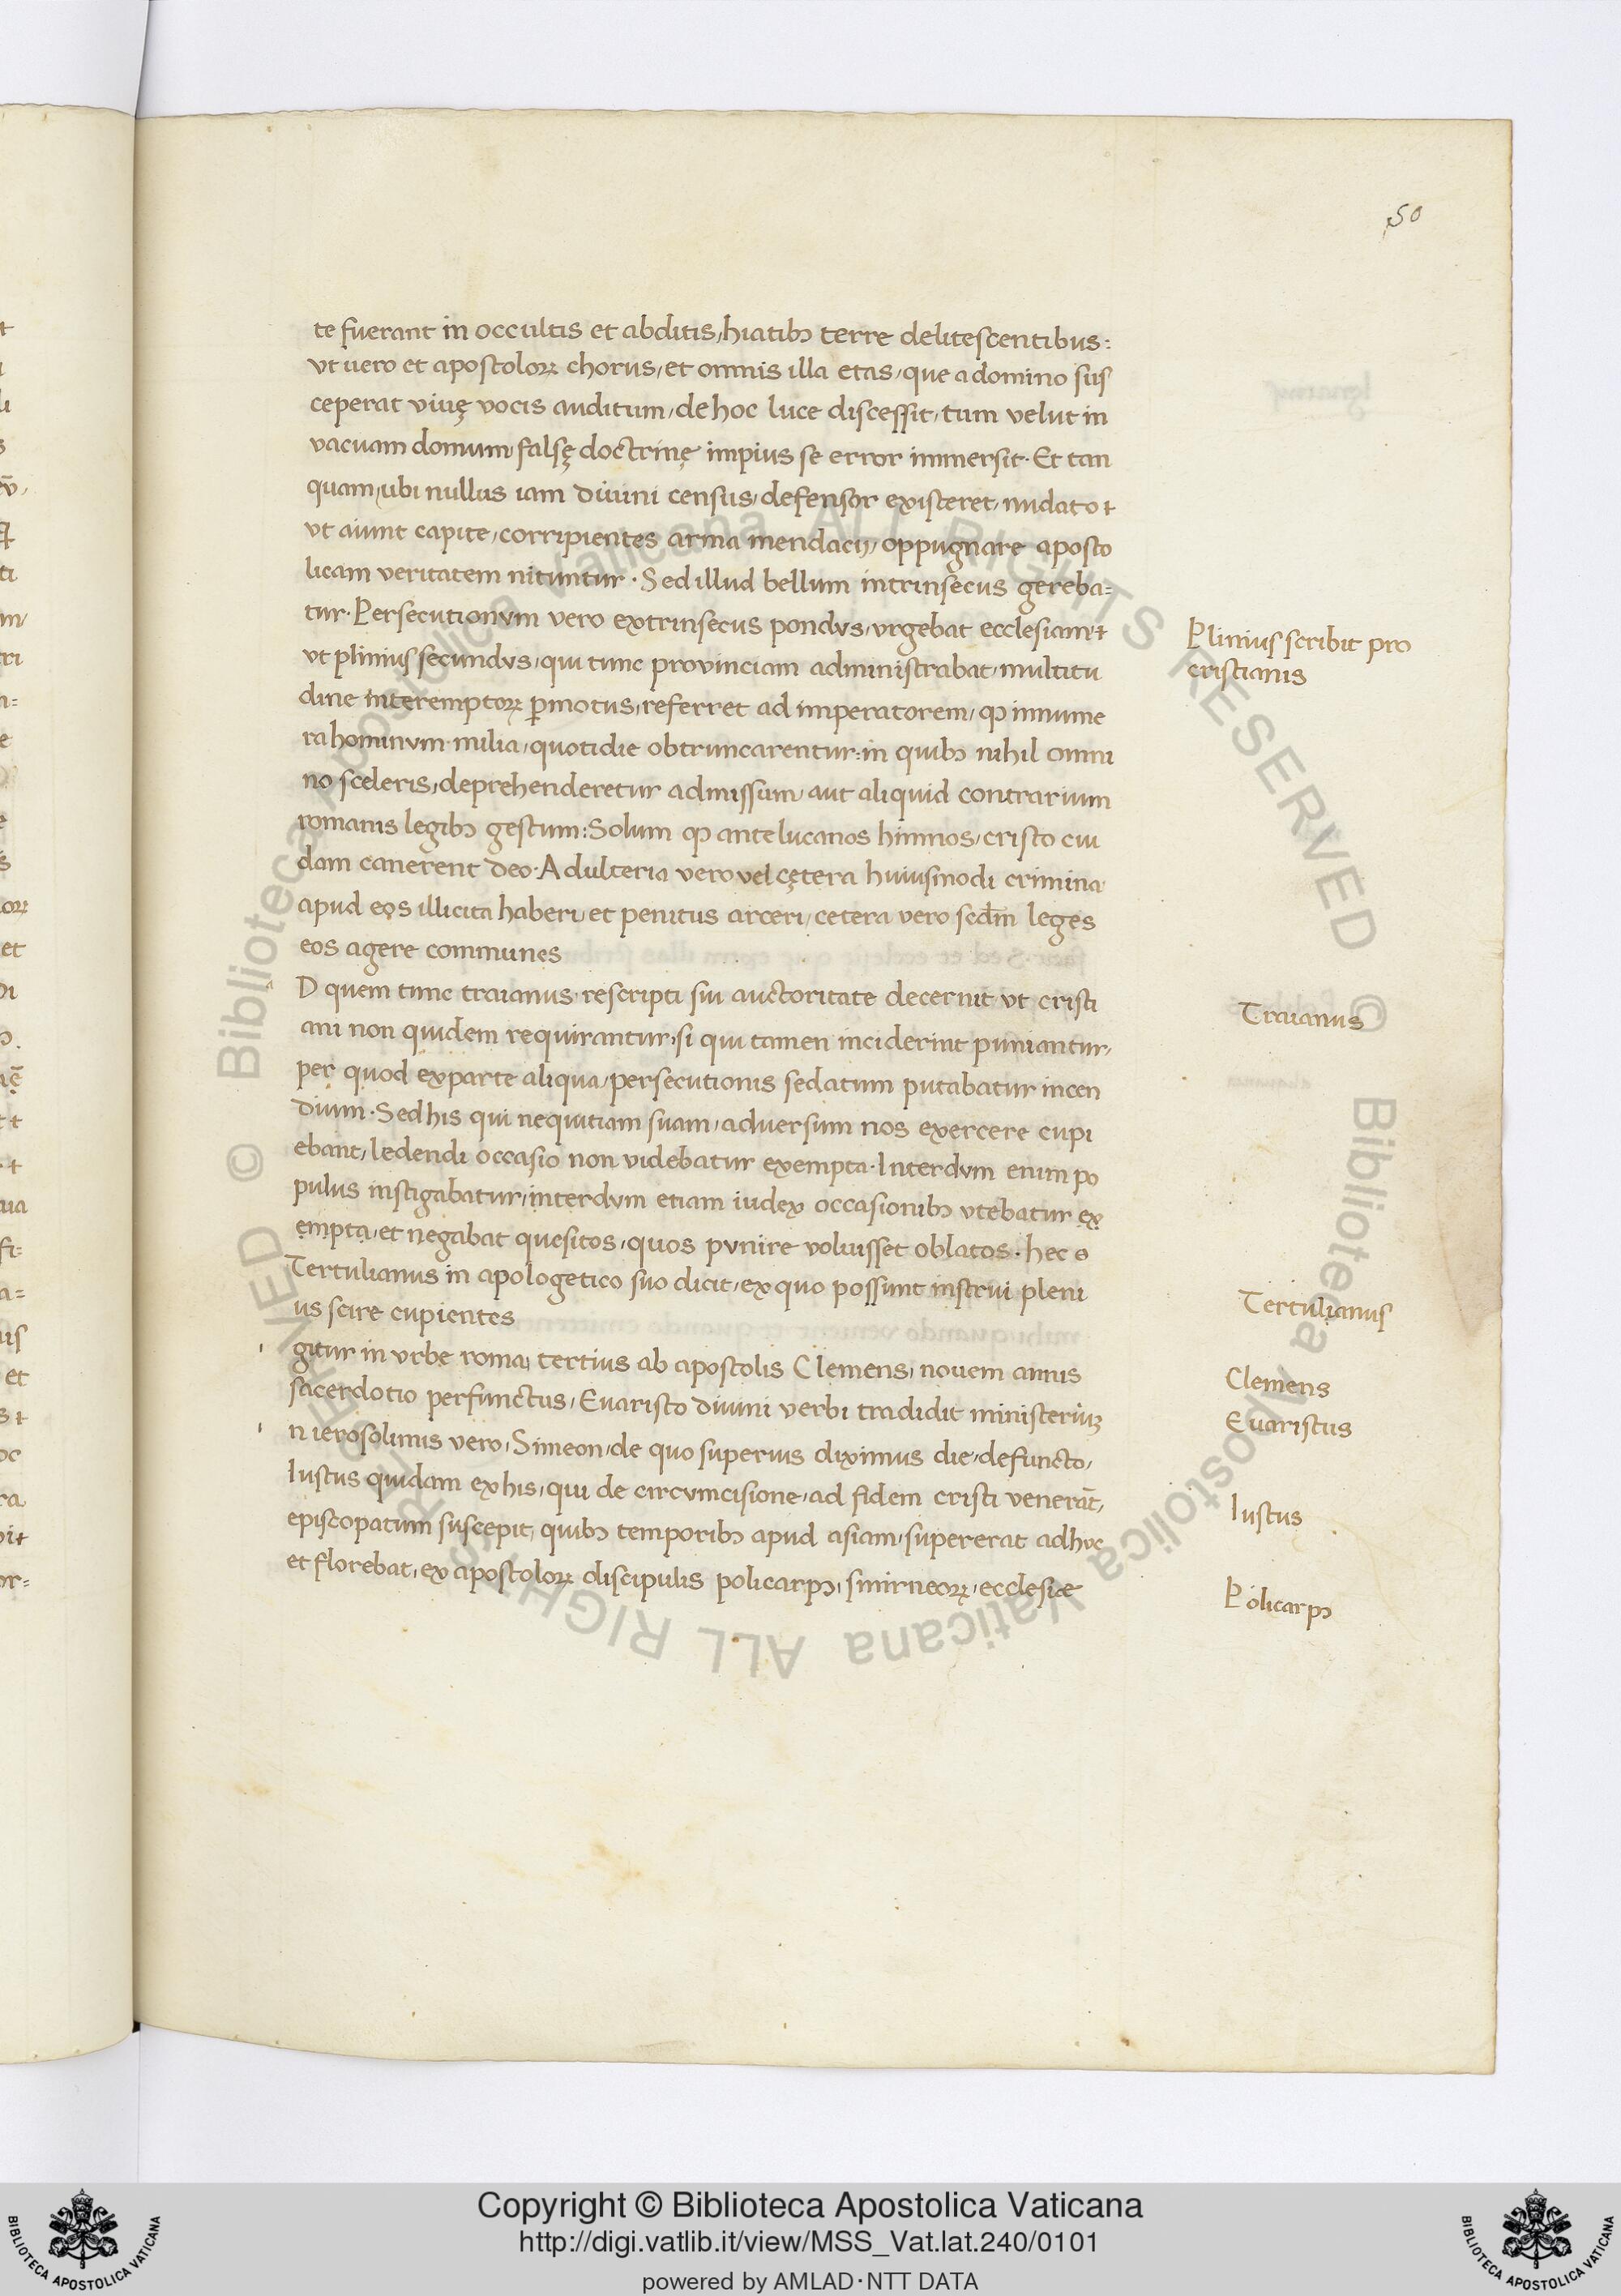 50
te fuerant in occultis et abditis, hiatibꝫ terre delitescentibus:
vt uero et apostoloꝝ chorus, et omnis illa etas, que a domino sus
ceperat viuę vocis auditum, de hoc luce discessit, tum velut in
vacuam domum falsę doctrinę impius se error immersit. Et tan
quam, ubi nullus iam diuini census, defensor existeret, nudato ⁊
vt aiunt capite, corripientes arma mendacij, oppugnare aposto
licam veritatem nituntur. Sed illud bellum intrinsecus gereba=
tur. Persecutionum vero extrinsecus pondus, vrgebat ecclesiam ⁊
vt plinius secundus, qui tunc provinciam administrabat, multitu
dine interemptoꝝ ꝑmotus, referret ad imperatorem, ꝙ innume
ra hominum milia, quotidie obtruncarentur: in quibꝫ nihil omni
no sceleris, deprehenderetur admissum, aut aliquid contrarium
romanis legibꝫ gestum: Solum ꝙ antelucanos himnos, cristo cui
dam canerent deo. Adulteria vero vel cętera huiusmodi crimina
apud eos illicita haberi, et penitus arceri, cetera vero scdm̄ leges
eos agere communes
D quem tunc traianus rescripti sui auctoritate decernit vt cristi
ani non quidem requirantur, si qui tamen inciderint puniantur,
per quod ex parte aliqua, persecutionis sedatum putabatur incen
dium. Sed his qui nequitiam suam, adversum nos exercere cupi
ebant, ledendi occasio non videbatur exempta. Interdum enim po
pulus instigabatur, interdum etiam iudex occasionibꝫ vtebatur ex
empta, et negabat quesitos, quos punire voluisset oblatos. hec
Tertulianus in apologetico suo dicit, ex quo possunt instrui pleni
us scire cupientes
gitur in vrbe roma, tertius ab apostolis Clemens, nouem annis
sacerdotio perfunctus, Euaristo diuini verbi tradidit ministeriuꝫ
n ierosolimis vero, Simeon, de quo superius diximus die, defuncto,
Iustus quidam ex his, qui de circumcisione, ad fidem cristi venerāt,
episcopatum suscepit, quibꝫ temporibꝫ apud asiam, supererat adhuc
et florebat, ex apostoloꝝ discipulis policarpꝫ, smirneoꝝ, ecclesiæ
Plinius scribit pro
cristianis
Traianus
Tertulianus
Clemens
Euaristus
Iustus
Policarpꝫ
© Biblioteca Apostolica Vaticana ALL RIGHTS RESERVED © Biblioteca Apostolica Vaticana ALL RIGHTS RESERVED
Copyright © Biblioteca Apostolica Vaticana
http://digi.vatlib.it/view/MSS_Vat.lat.240/0101
powered by AMLAD·NTT DATA
BIBLIOTECA APOSTOLICA VATICANA
BIBLIOTECA APOSTOLICA VATICANA